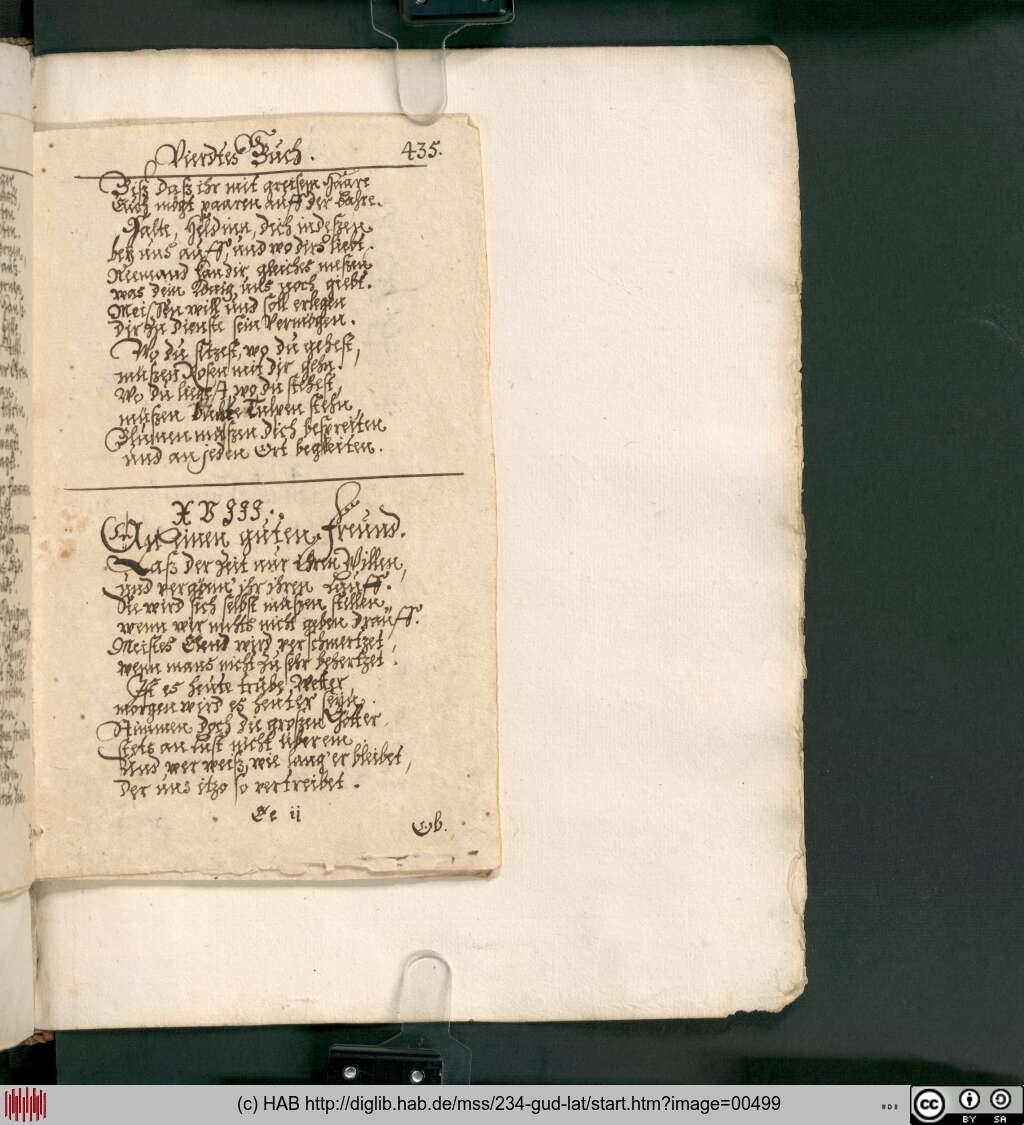 Vierdtes Buch. 435.
Biß daß ihr mit greisem Haare
Euch mögt paaren auff der Bahre.
Halte, Heldinn, dich indeßen
bey uns auff, und wo dirs liebt.
Niemand kan dir gleiches meßen
was dein König uns noch giebt.
Meissen will und soll erlegen
Dir zu Dienste sein Vermögen.
Wo du sitzest, wo du gehest,
müßen Rosen mit dir gehn.
Wo du liegst, wo du stehest,
müßen Tulpen stehn
Blumen müßen dich bespreiten
und an jeden Ort begleiten.
XVIII.
An einen guten Freund.
Laß der Zeit nur ihren Willen,
und vergönn' ihr ihren Lauff.
Sie wird sich selbst müßen stillen,
wenn wir nichts nicht geben drauff.
Meistes Elend wird verschmertzet,
wenn mans nicht zu sehr behertzet.
Ist es heute trübe Wetter
morgen wird es heuter seyn.
Stimmen doch die großen Götter
stets an Lust nicht überein
Und wer weiß, wie lang' er bleibet,
der uns itzo so vertreibet.
Ee ij
Ob.
(c) HAB http://diglib.hab.de/mss/234-gud-lat/start.htm?image=00499
cc BY SA